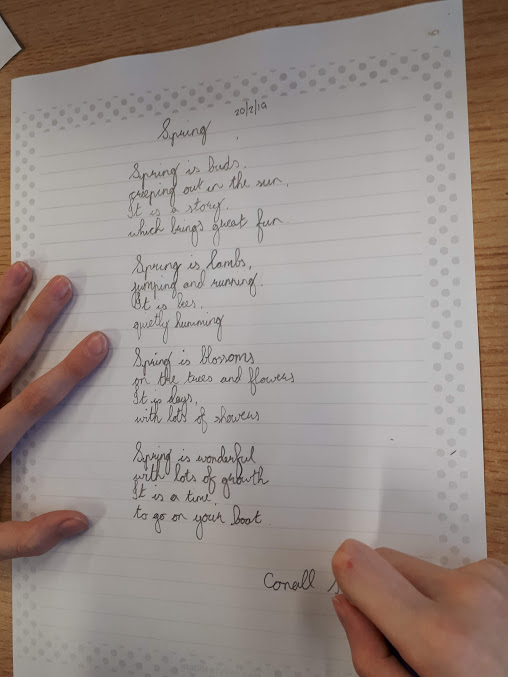 20/2/19
Spring
Spring is buds.
creeping out in the sun.
It is a story.
which brings great fun
Spring is lambs,
jumping and running.
It is bees.
quietly humming
Spring is blossoms
on the trees and flowers
It is days,
with lots of showers
Spring is wonderful
with lots of growth
It is a time.
to go on your boat
Conall